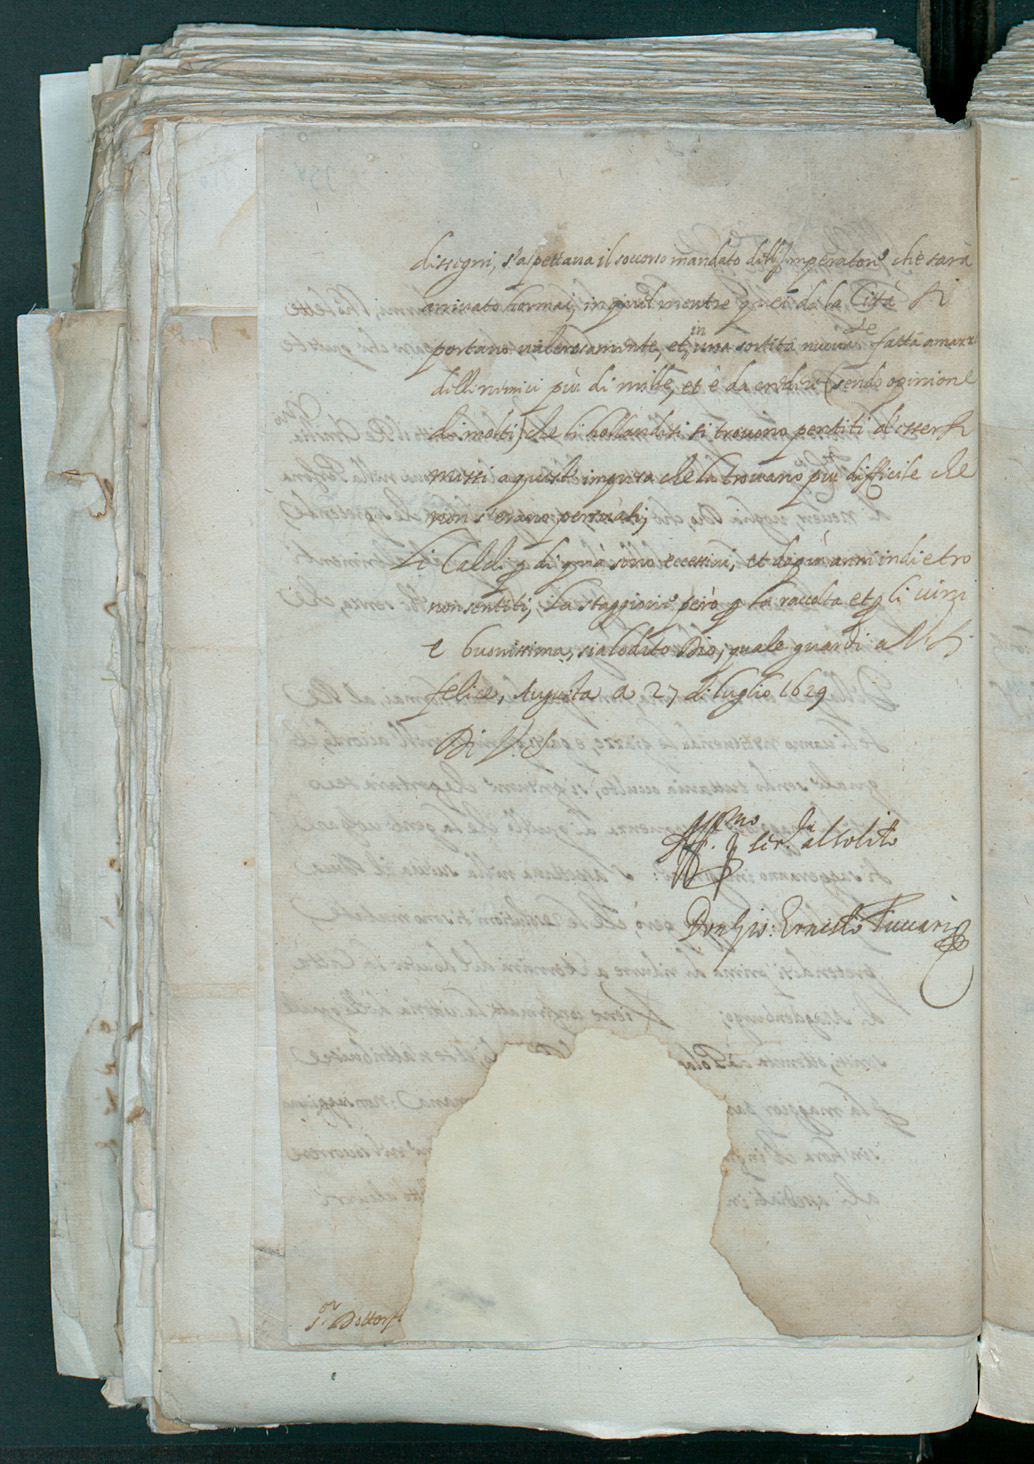 dissegni, s'aspettaua il soccorso mandato dall'Imperatore che sarà
arriuato hormai, in quel mentre q.ei da la Città si
portano valerosamente, et in una sortita nuoua.te fatta amazz
delli nimici più di mille, et è da credere (sendo opinione
di molti) che li hollandesi si trouono pentiti d'essersi
messi a questa impresa che la trouano più difficile che
non s'erano persuasi,
Li Caldi p di quà sono eccessiui, et da più anni indietro
non sentiti, la staggione però p la raccolta et p li uini
è buonissima, sia lodato Dio, quale guardi a V.S.
felice, Augusta a 27 di luglio 1629
Di V. S.
Aff.mo p ser.la al solito
Don Gio: Ernesto Fuccari
S.or Dottor